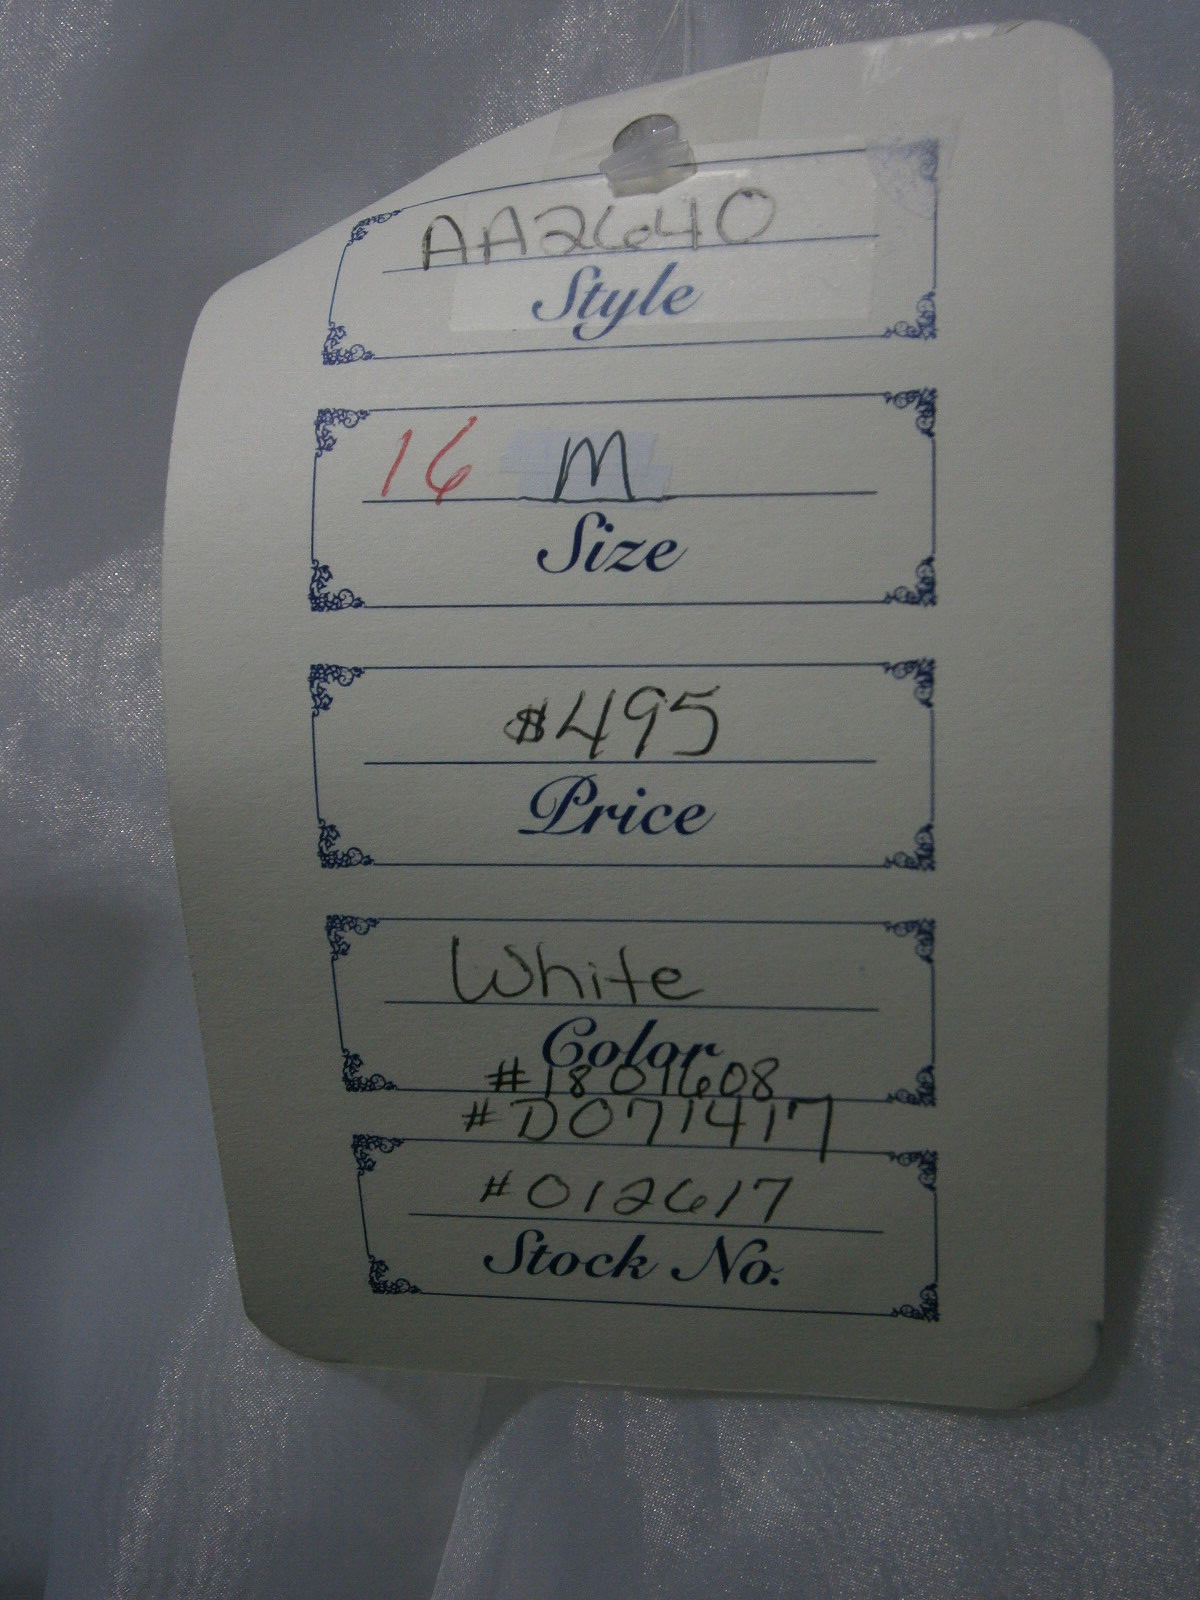 AA2640
Style
16 M
Size
$495
Price
White
Color
#1801608
#D071417
#012617
Stock No.